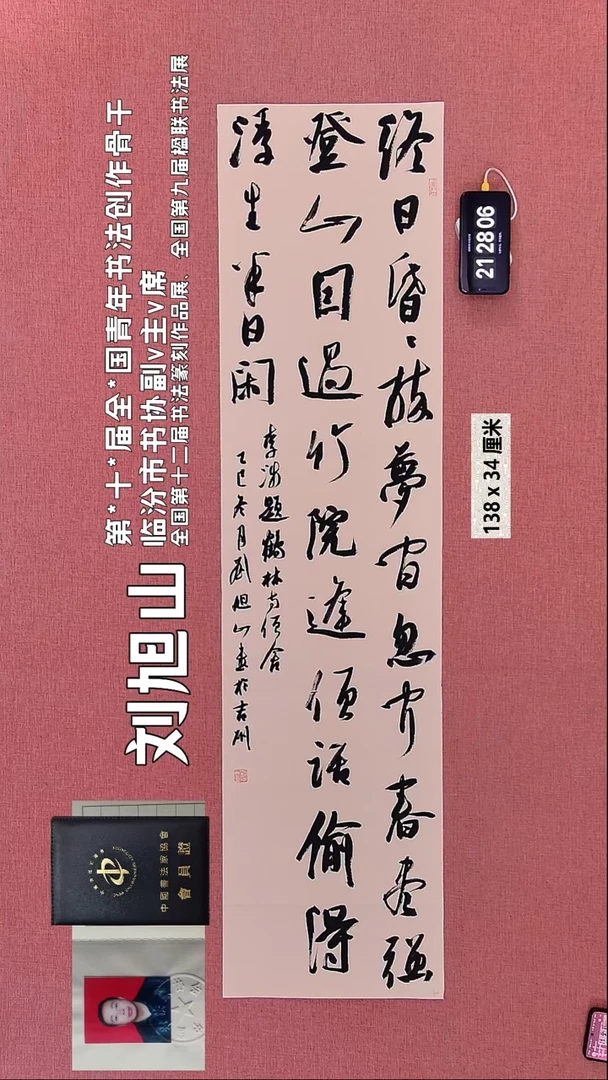 終日昏〻醉夢間忽聞春尽強
登山因過竹院逢僧話偷得
浮生半日閑
李涉題鶴林寺僧舍
乙巳冬月劉旭山書於吉州
刘旭山
第*十*届全*国青年书法创作骨干
临汾市书协副v主v席
全国第十二届书法篆刻作品展、全国第九届楹联书法展
中國書法家協會
會員證
21 28 06
138 x 34 厘米